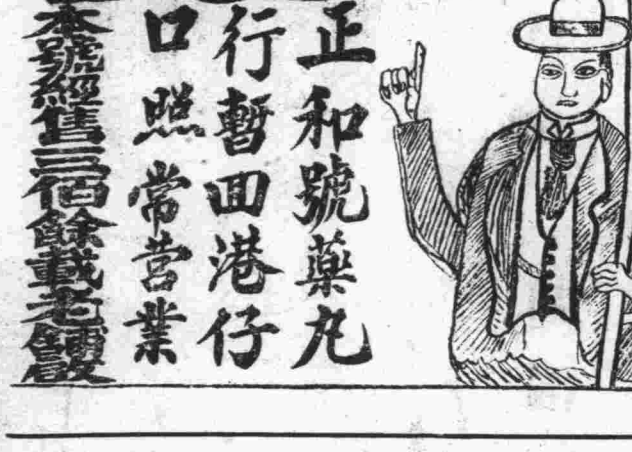 正和號藥丸
行暫回港仔
口照常营業
本號經售三佰餘載老舖啟